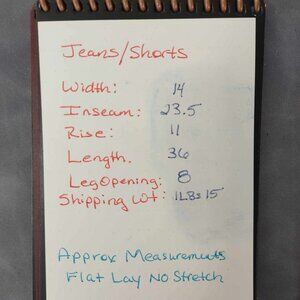 Jeans/Shorts
Width: 14
Inseam: 23.5
Rise: 11
Length. 36
Leg Opening: 8
Shipping Wt: 1LBS 15
Approx Measurements
Flat Lay No Stretch